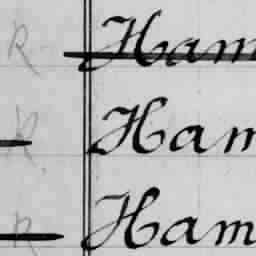 R Ham
R Ham
R Ham